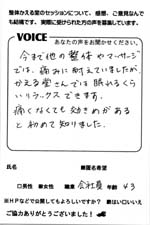 整体かえる堂のセッションについて、感想、ご意見なんで
も結構です。実際に受けられた方の声を募集しています。
VOICE
あなたの声をお聞かせください。
今まで他の整体やマッサージ
では、痛みに耐えていましたが
かえる堂さんでは眠れるくら
いリラックスできます。
痛くなくても効きめがある
と初めて知りました。
氏名
■匿名希望
□男性 ■女性 職業 会社員 年齢 43
※HPなどで公開してもよろしいですか? ■はい□いいえ
ご協力ありがとうございました!